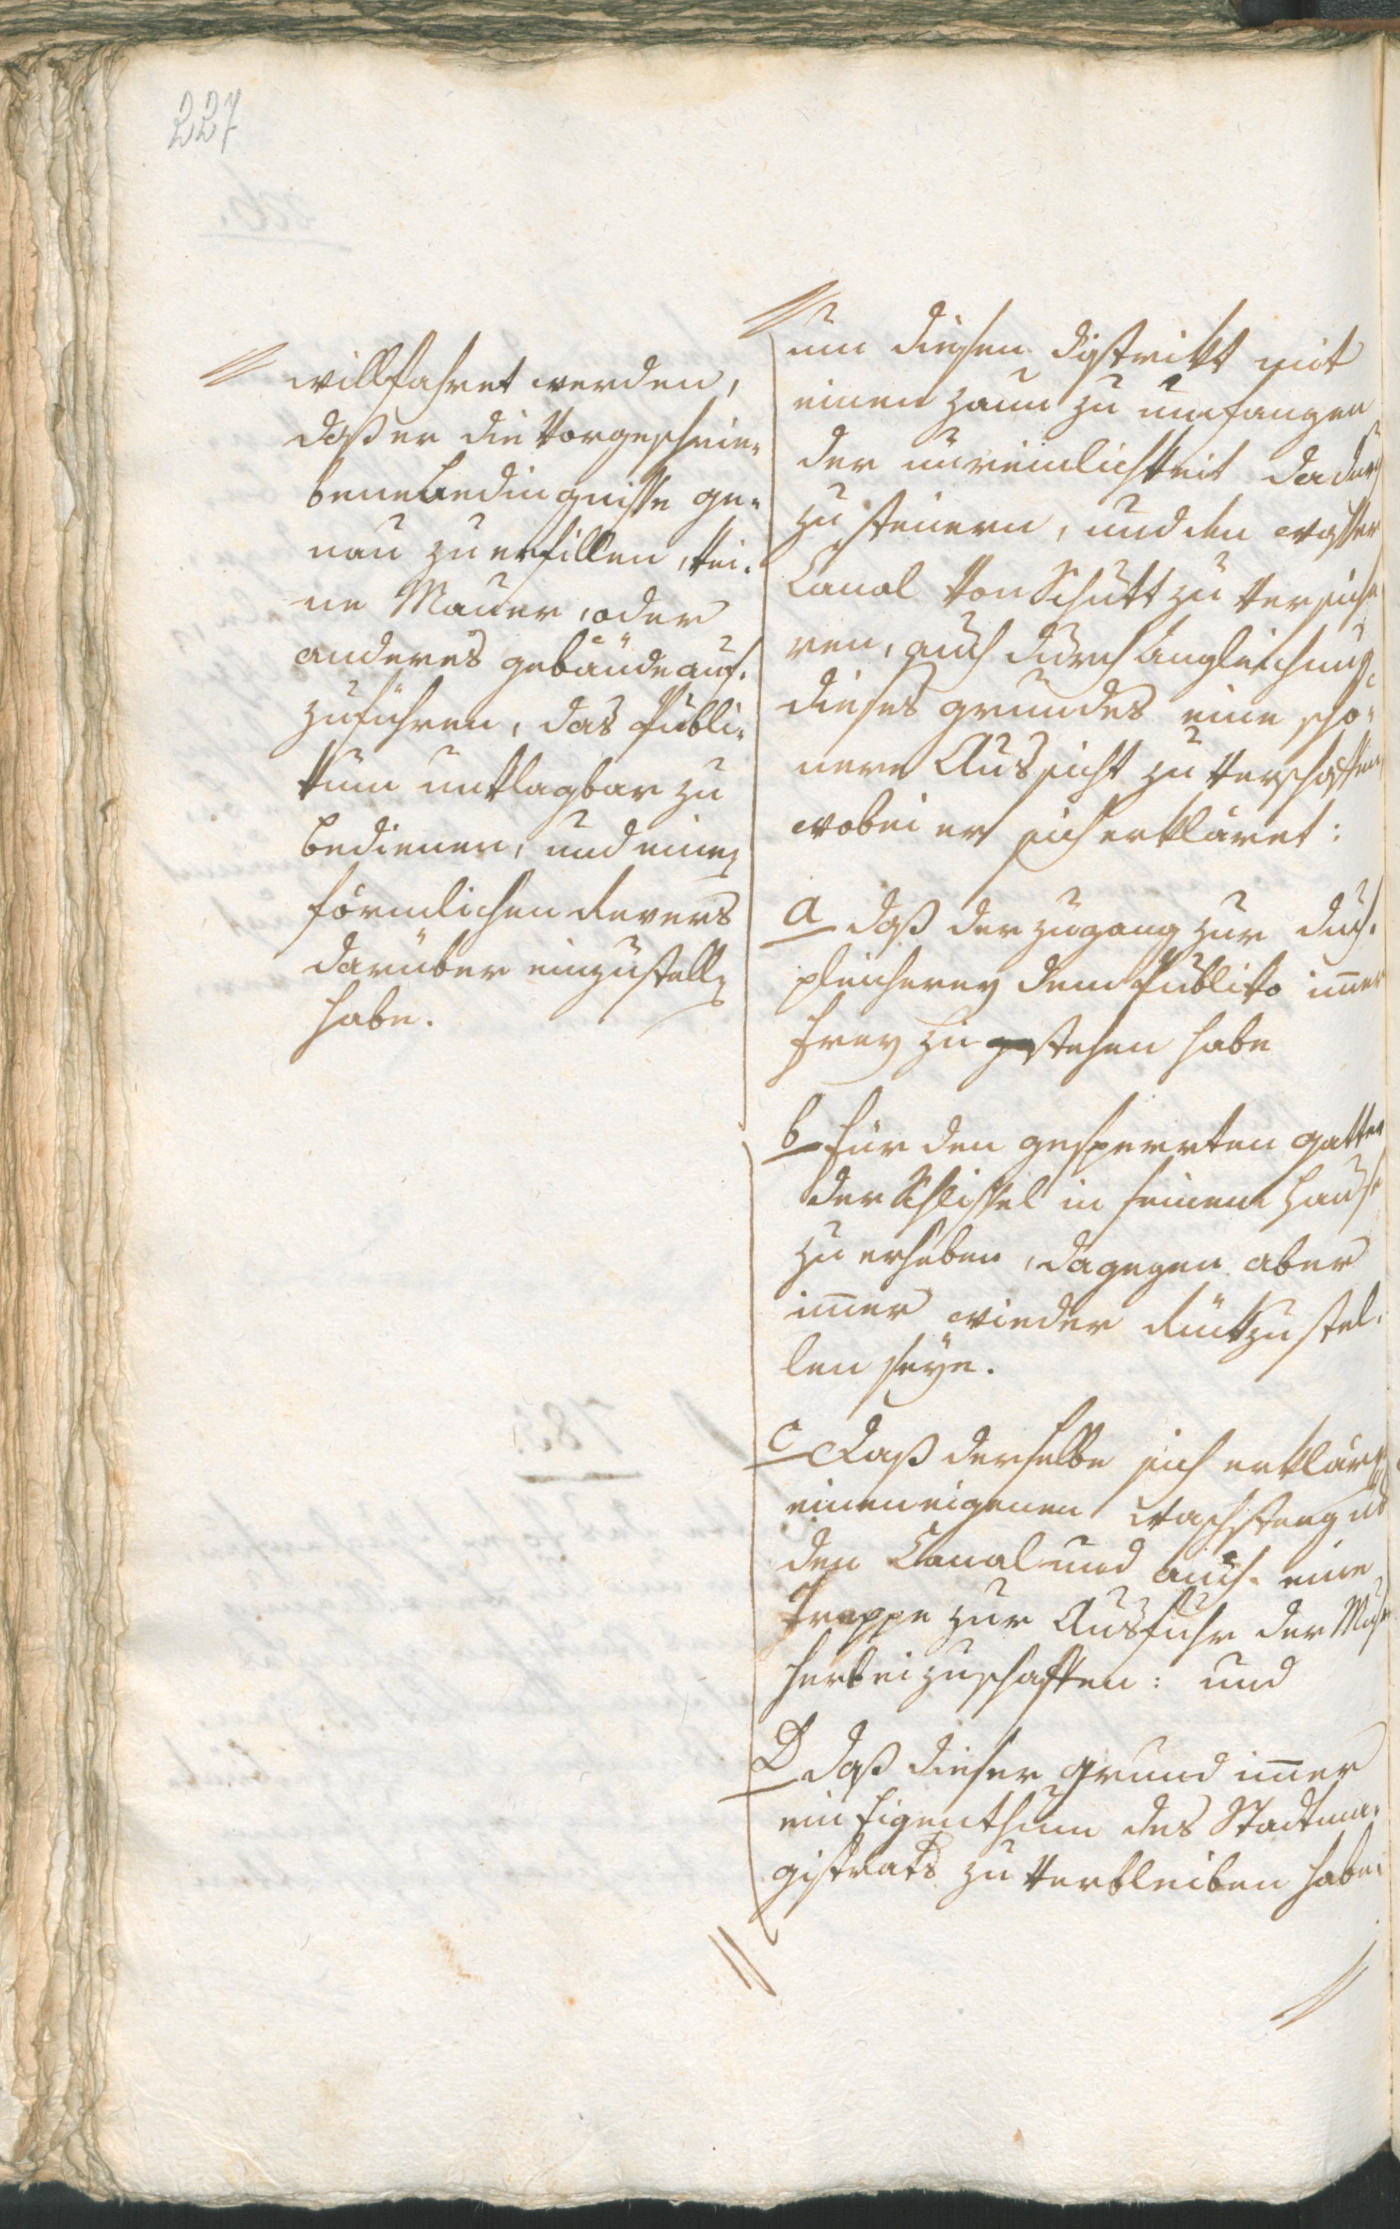 227
willfahret werden,
daß er die Vorgeschrie-
bene Bedingnisse ge-
nau zu erfillen, kei-
ne Mauer, oder
anderes gebäude auf-
zuführen, das Publi-
kum unklagbar zu
bedienen, und einen
förmlichen Revers
darüber einzustellen
habe.
um diesen Distrikt mit
einen Zaun zu umfangen
der unreinlichkeit dadurch
zu steuern, und den Wasser
Canal Von Schutt zu Versiche
ren, auch durch Angleichung
dieses grundes eine schö-
nere Aussicht zu Verschaffen
wobei er sich erkläret:
a daß der Zugang zur
dem Publiko imer
frey zu stehen habe
b für den gesperrten gatter
der Schlissel in seinem Hause
zu erheben, dagegen aber
imer wieder Rückzustel-
len seye.
c Daß derselbe sich erkläre
einen eigenen Waschsteeg
den Canal und auch eine
Treppe zur Ausfuhr der
herbeizuschaffen: und
D daß dieser grund imer
ein Eigenthum des Stadtma-
gistrats zu Verbleiben habe